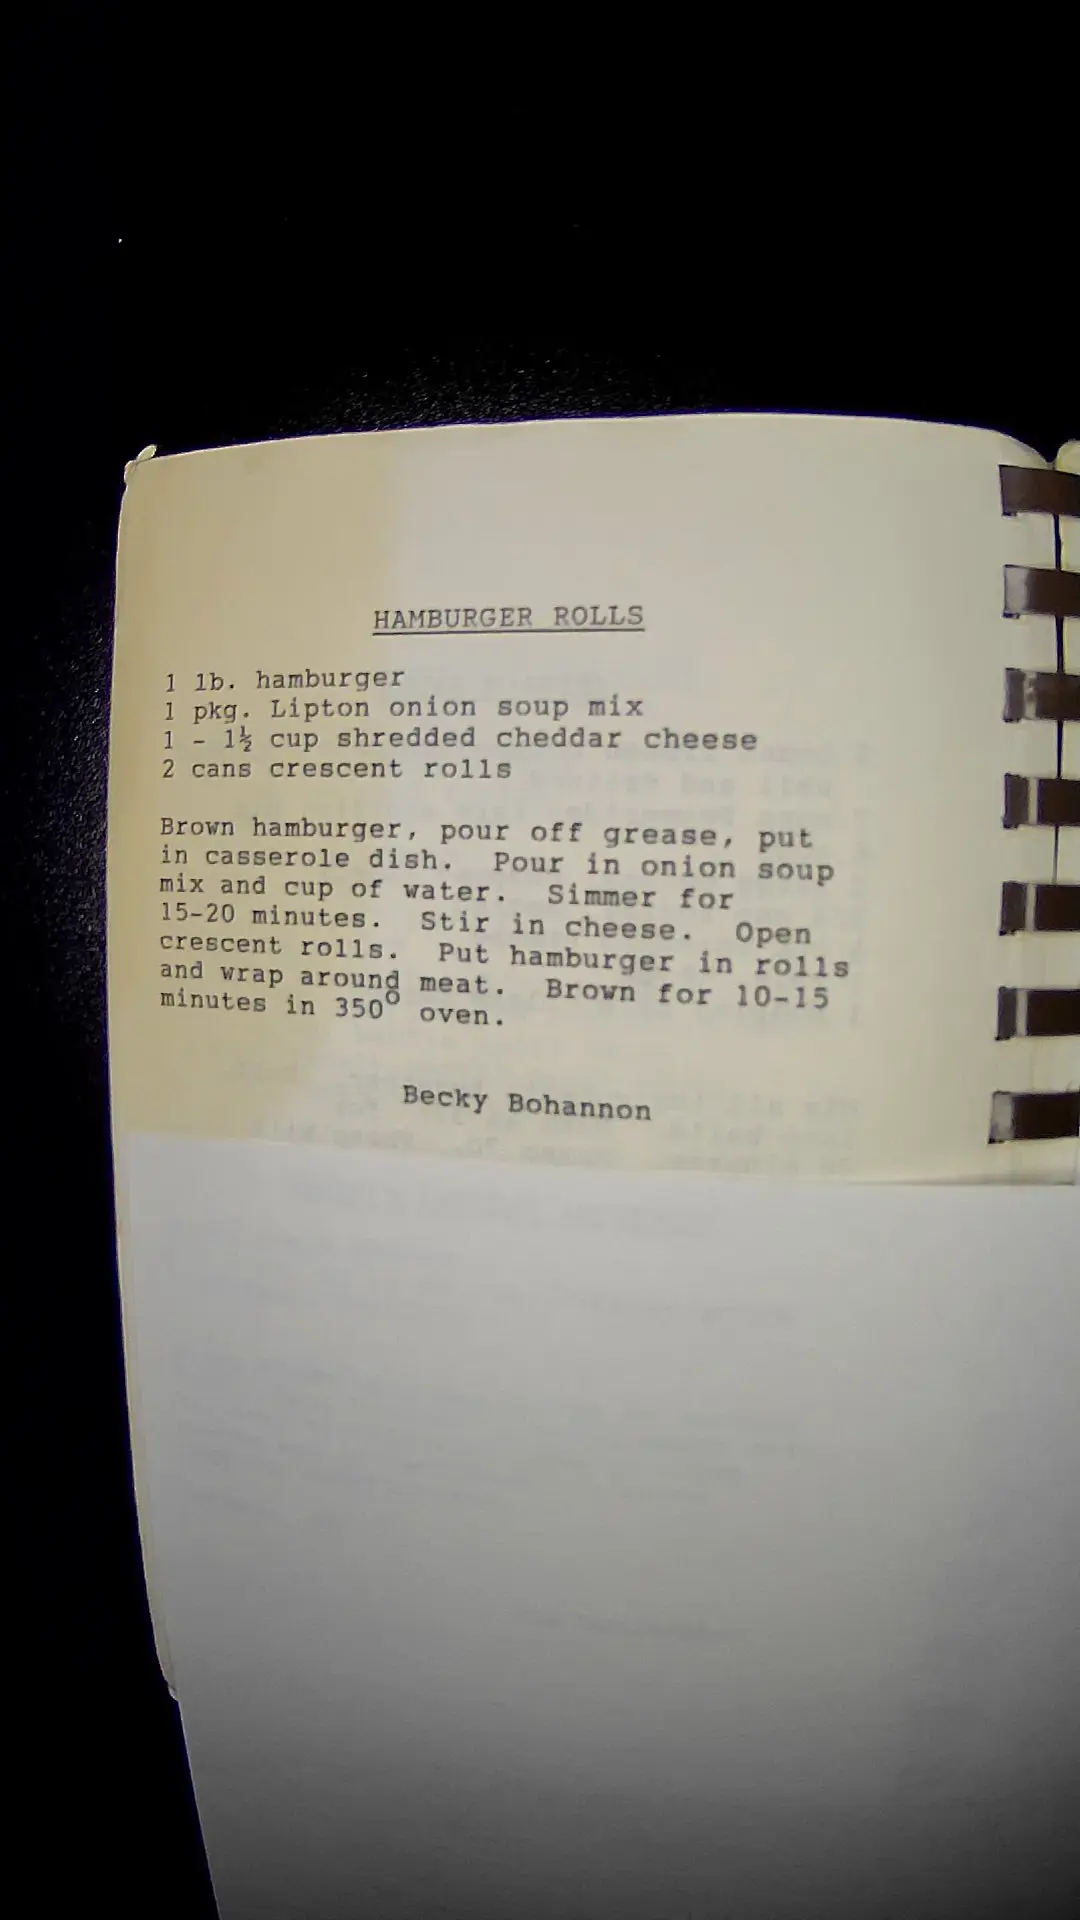 HAMBURGER ROLLS
1 lb. hamburger
1 pkg. Lipton onion soup mix
1 - 1½ cup shredded cheddar cheese
2 cans crescent rolls
Brown hamburger, pour off grease, put
in casserole dish. Pour in onion soup
mix and cup of water. Simmer for
15-20 minutes. Stir in cheese. Open
crescent rolls. Put hamburger in rolls
and wrap around meat. Brown for 10-15
minutes in 350° oven.
Becky Bohannon